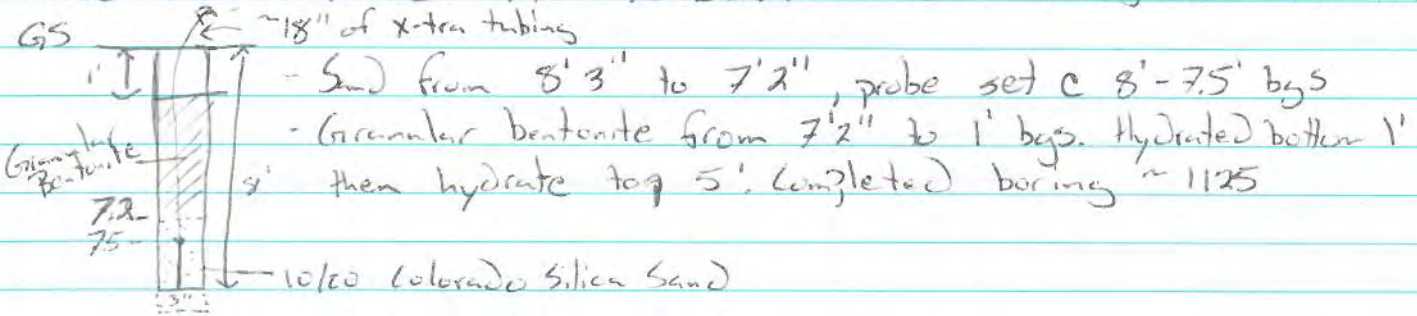 GS
~18" of x-tra tubing
1'
- Sand from 8'3" to 7'2", probe set @ 8'-7.5' bgs
- Granular bentonite from 7'2" to 1' bgs. Hydrated bottom 1'
then hydrate top 5'. Completed boring ~ 1125
Granular
Bentonite
8'
7.2-
7.5-
10/20 Colorado Silica Sand
3"